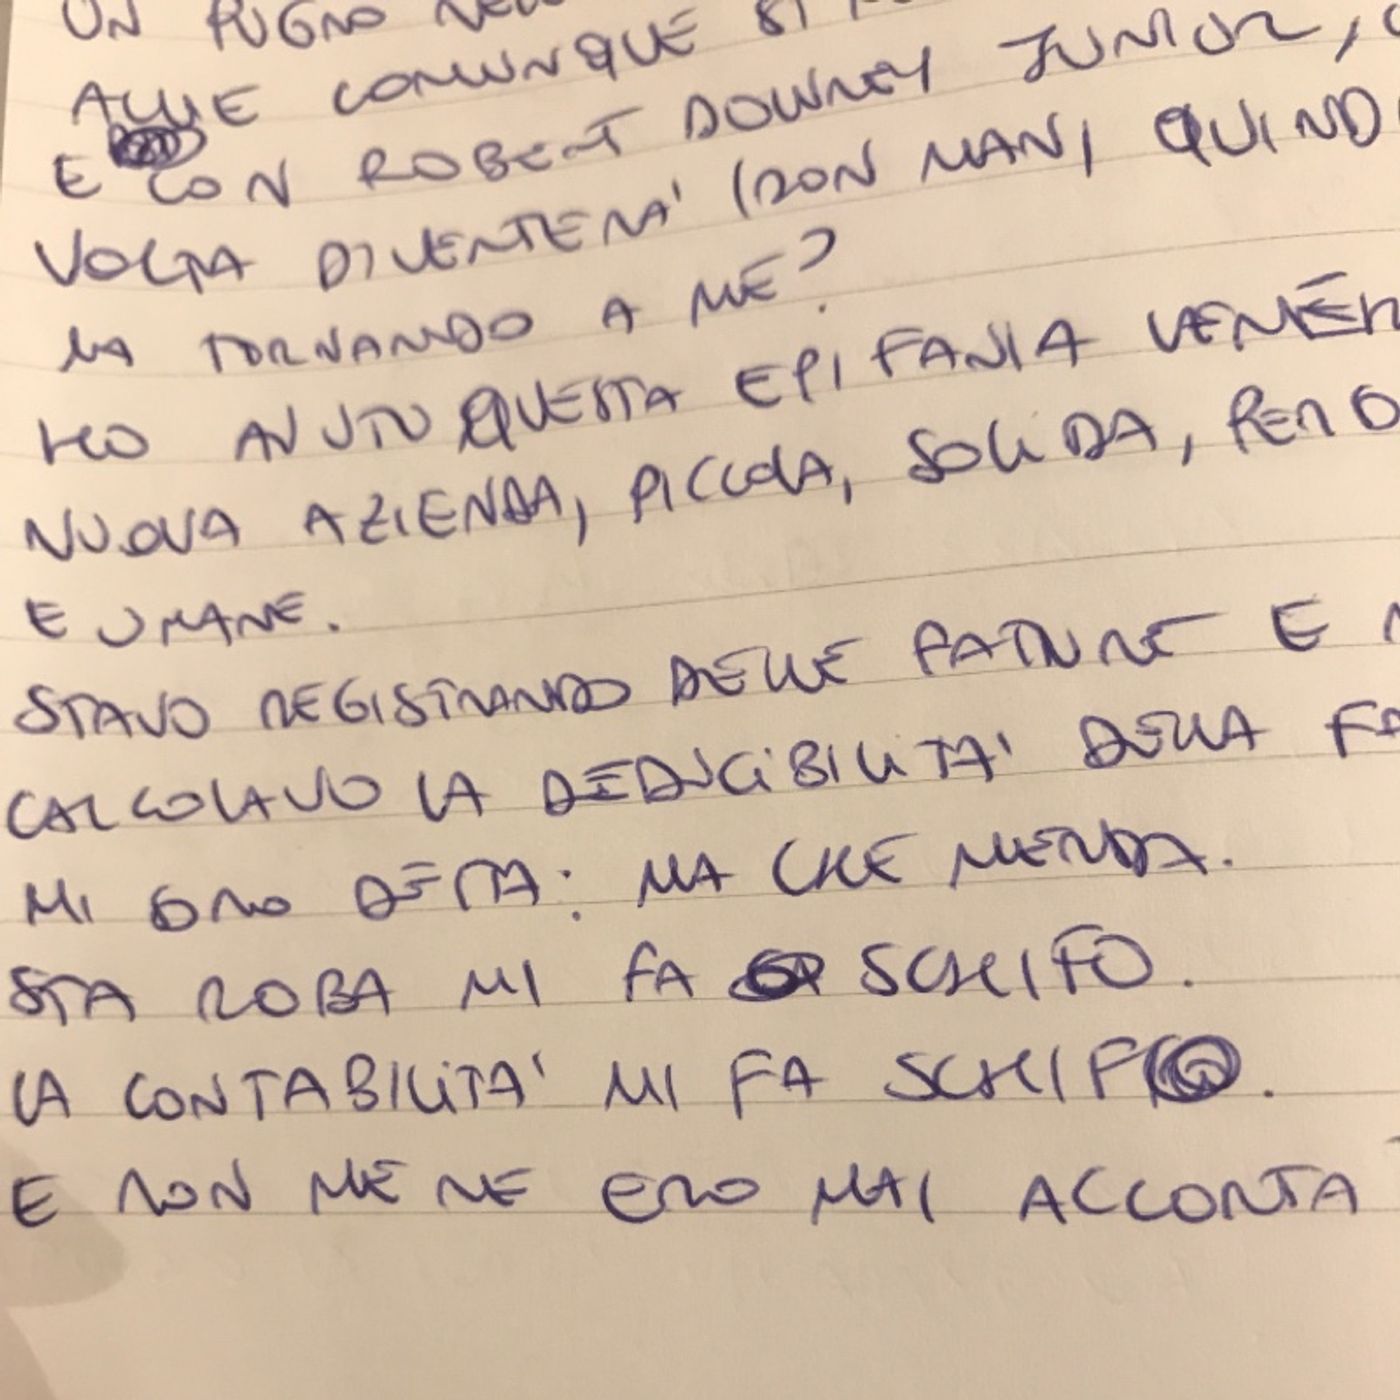 UN PUGNO
ALLIE COMUNQUE SI
E CON ROBERT DOWNEY JUNIOR,
VOLTA DIVENTERÀ IRON MAN, QUIND
MA TORNANDO A ME?
HO AVUTO QUESTA EPIFANIA VENER
NUOVA AZIENDA, PICCOLA, SOLIDA, PERO
E UMANE.
STAVO REGISTRANDO DELLE FATTURE E
CALCOLAVO LA DEDUCIBILITA' DELLA FA
MI SONO DETTA: MA CHE MERDA.
STA ROBA MI FA SCHIFO.
LA CONTABILITA' MI FA SCHIFO.
E NON ME NE ERO MAI ACCORTA